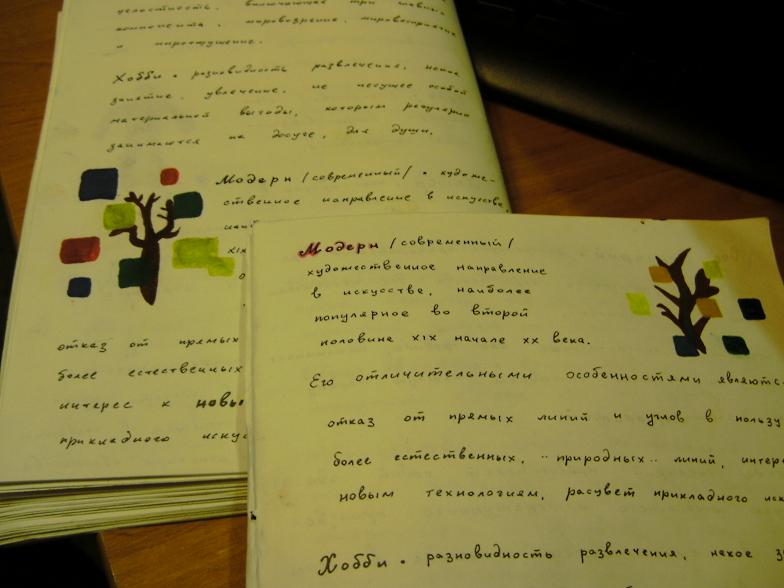 целостность, включающая три главных
компонента. мировоззрение, мировосприятие
и мироощущение.
Хобби • разновидность развлечения, некое
занятие, увлечение, не несущее особой
материальной выгоды, которым регулярно
занимаются на досуге, для души.
Модерн /современный/ • художе-
ственное направление в искусстве,
наи
XIX
о
отказ от прямых
более естественных
интерес к новы
прикладного искус
Модерн /современный/
художественное направление
в искусстве, наиболее
популярное во второй
половине XIX начале XX века.
Его отличительными особенностями являютс
отказ от прямых линий и углов в пользу
более естественных, "природных" линий, интере
новым технологиям, расцвет прикладного иск
Хобби • разновидность развлечения, некое за